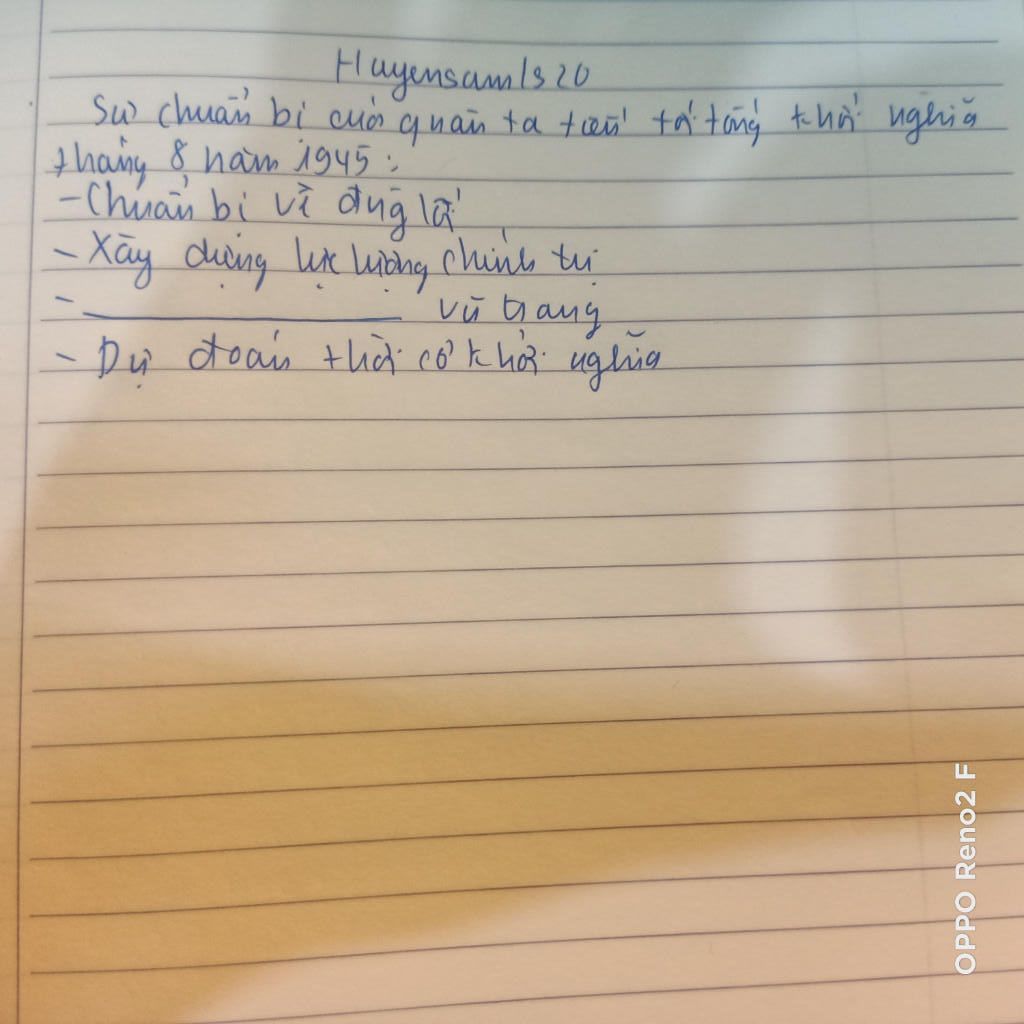 Huyensam1s20
Sự chuẩn bị của quân ta tiến tới tổng khởi nghĩa
tháng 8 năm 1945:
- Chuẩn bị về đường lối
- Xây dựng lực lượng chính trị
- ___________ vũ trang
- Dự đoán thời cơ khởi nghĩa
OPPO Reno2 F